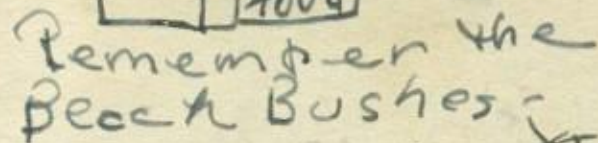 Remember the
Beach Bushes -